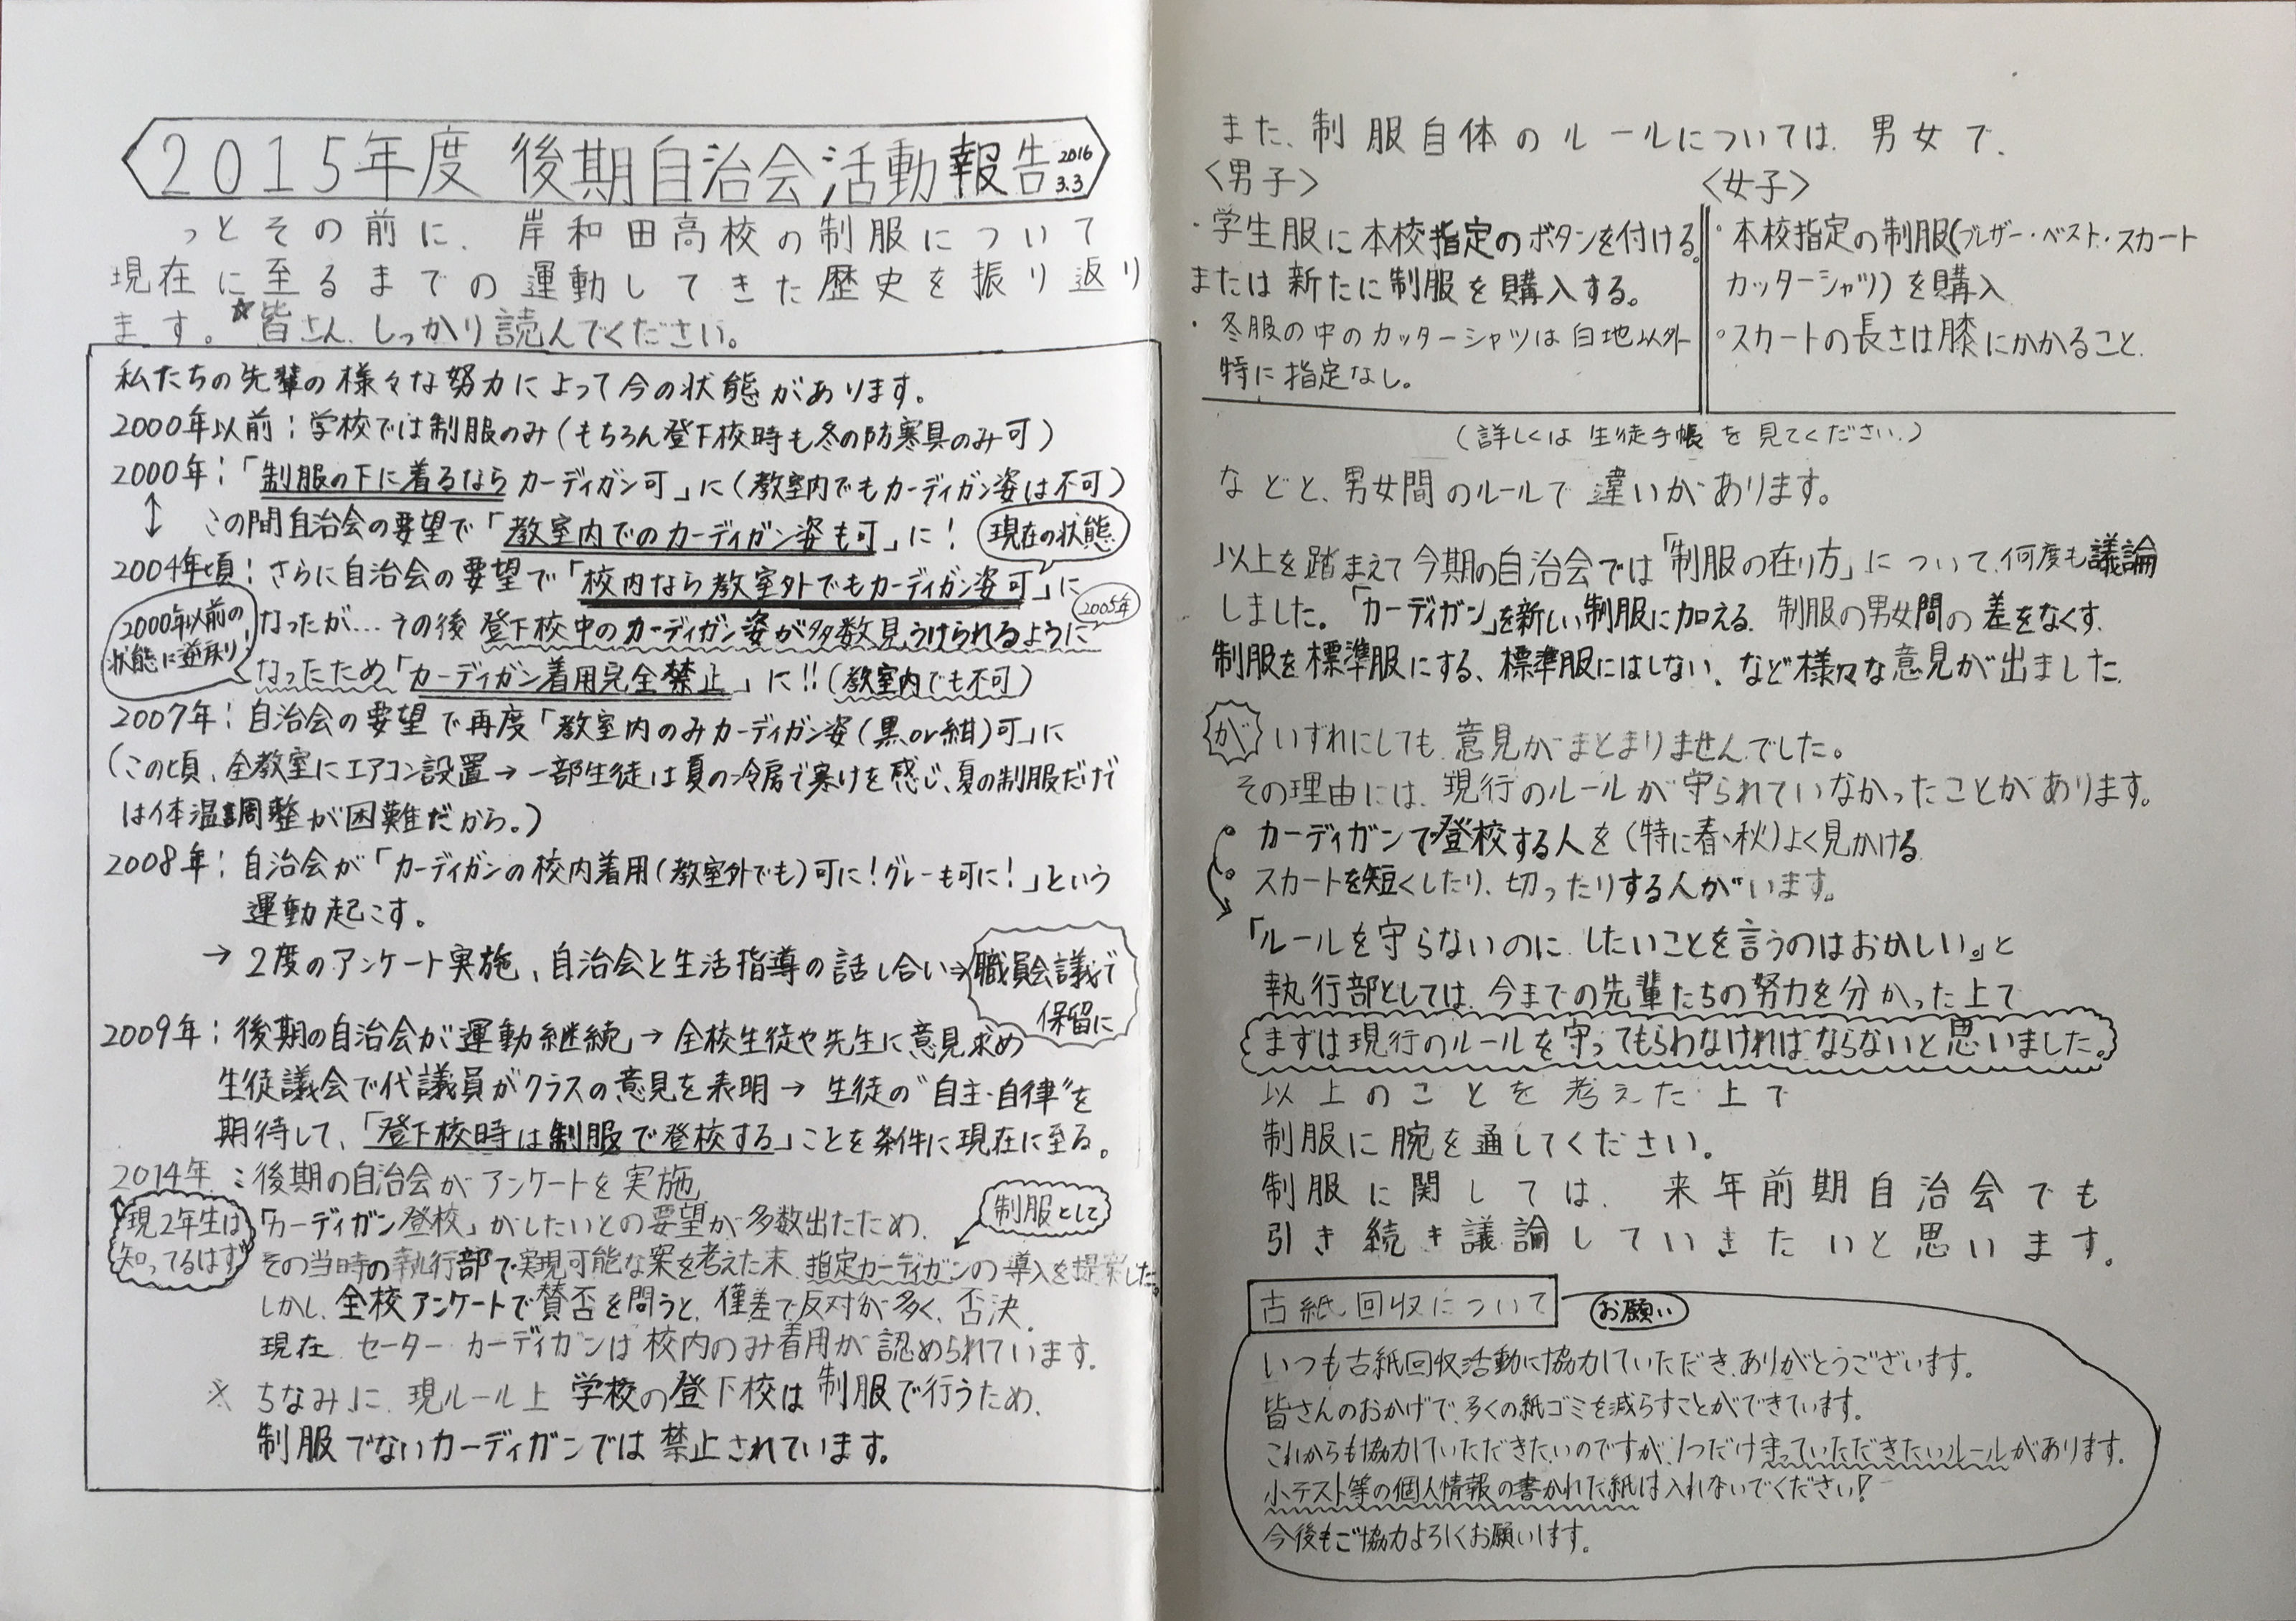 2015年度 後期自治会活動報告 2016 3.3
っとその前に、岸和田高校の制服について
現在に至るまでの運動してきた歴史を振り返り
ます。☆皆さん、しっかり読んでください。
私たちの先輩の様々な努力によって今の状態があります。
2000年以前：学校では制服のみ（もちろん登下校時も冬の防寒具のみ可）
2000年：「制服の下に着るならカーディガン可」に（教室内でもカーディガン姿は不可）
↕ この間自治会の要望で「教室内でのカーディガン姿も可」に！
現在の状態
2004年頃：さらに自治会の要望で「校内なら教室外でもカーディガン姿可」に
2005年
なったが…その後 登下校中のカーディガン姿が多数見うけられるように
なったため「カーディガン着用完全禁止」に!!（教室内でも不可）
2000年以前の
状態に逆戻り
2007年：自治会の要望で再度「教室内のみカーディガン姿（黒or紺）可」に
（この頃、全教室にエアコン設置→一部生徒は夏の冷房で寒けを感じ、夏の制服だけで
は体温調整が困難だから。）
2008年：自治会が「カーディガンの校内着用（教室外でも）可に！グレーも可に！」という
運動起こす。
→2度のアンケート実施、自治会と生活指導の話し合い⇒職員会議で
保留に
2009年：後期の自治会が運動継続→全校生徒や先生に意見求め
生徒議会で代議員がクラスの意見を表明→生徒の“自主・自律”を
期待して、「登下校時は制服で登校する」ことを条件に現在に至る。
2014年：後期の自治会がアンケートを実施
現2年生は
知ってるはず
「カーディガン登校」がしたいとの要望が多数出たため、
制服として
その当時の執行部で実現可能な案を考えた末、指定カーディガンの導入を提案した。
しかし、全校アンケートで賛否を問うと、僅差で反対が多く、否決。
現在、セーター・カーディガンは校内のみ着用が認められています。
※ちなみに、現ルール上 学校の登下校は制服で行うため、
制服でないカーディガンでは禁止されています。
また、制服自体のルールについては、男女で、
〈男子〉
・学生服に本校指定のボタンを付ける。
または新たに制服を購入する。
・冬服の中のカッターシャツは白地以外
特に指定なし。
〈女子〉
・本校指定の制服（ブレザー・ベスト・スカート
カッターシャツ）を購入
・スカートの長さは膝にかかること。
（詳しくは生徒手帳を見てください。）
などと、男女間のルールで違いがあります。
以上を踏まえて今期の自治会では「制服の在り方」について、何度も議論
しました。「カーディガン」を新しい制服に加える、制服の男女間の差をなくす、
制服を標準服にする、標準服にはしない、など様々な意見が出ました。
が いずれにしても、意見がまとまりませんでした。
その理由には、現行のルールが守られていなかったことがあります。
・カーディガンで登校する人を（特に春、秋）よく見かける
・スカートを短くしたり、切ったりする人がいます。
「ルールを守らないのに、したいことを言うのはおかしい。」と
執行部としては、今までの先輩たちの努力を分かった上で
まずは現行のルールを守ってもらわなければならないと思いました。
以上のことを考えた上で
制服に腕を通してください。
制服に関しては、来年前期自治会でも
引き続き議論していきたいと思います。
古紙回収について お願い
いつも古紙回収活動に協力していただき、ありがとうございます。
皆さんのおかげで、多くの紙ゴミを減らすことができています。
これからも協力していただきたいのですが、1つだけ守っていただきたいルールがあります。
小テスト等の個人情報の書かれた紙は入れないでください！
今後もご協力よろしくお願いします。